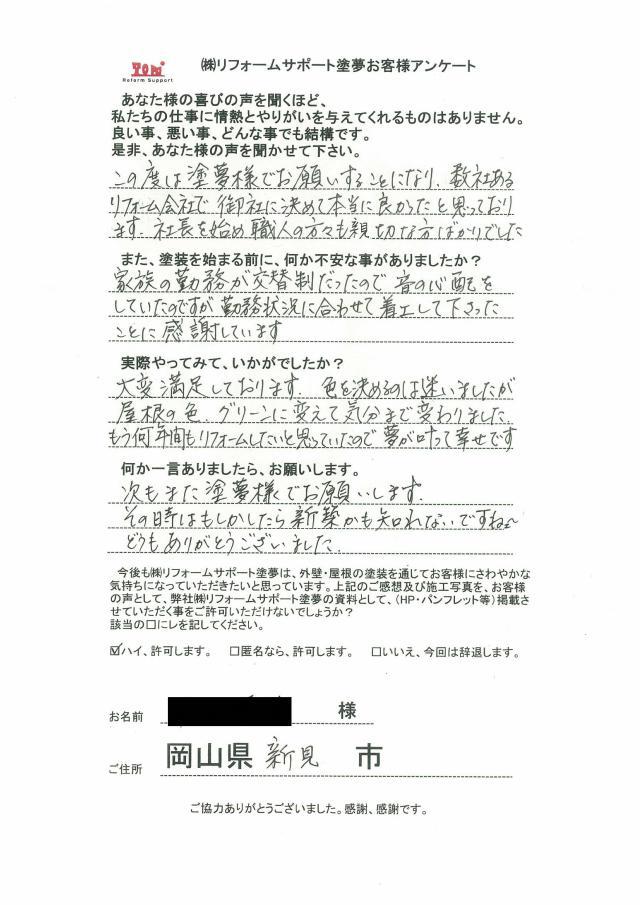 TOM
Reform Support
㈱リフォームサポート塗夢お客様アンケート
あなた様の喜びの声を聞くほど、
私たちの仕事に情熱とやりがいを与えてくれるものはありません。
良い事、悪い事、どんな事でも結構です。
是非、あなた様の声を聞かせて下さい。
この度は塗夢様でお願いすることになり、数社ある
リフォーム会社で御社に決めて本当に良かったと思っており
ます。社長を始め職人の方々も親切な方ばかりでした
また、塗装を始まる前に、何か不安な事がありましたか？
家族の勤務が交替制だったので音の心配を
していたのですが勤務状況に合わせて着工して下さった
ことに感謝しています
実際やってみて、いかがでしたか？
大変満足しております。色を決めるのは迷いましたが
屋根の色、グリーンに変えて気分まで変わりました。
もう何年間もリフォームしたいと思っていたので夢が叶って幸せです
何か一言ありましたら、お願いします。
次もまた塗夢様でお願いします。
その時はもしかしたら新築かも知れないですねェ～
どうもありがとうございました。
今後も㈱リフォームサポート塗夢は、外壁・屋根の塗装を通じてお客様にさわやかな
気持ちになっていただきたいと思っています。上記のご感想及び施工写真を、お客様
の声として、弊社㈱リフォームサポート塗夢の資料として、（HP・パンフレット等）掲載さ
せていただく事をご許可いただけないでしょうか？
該当の□にレを記してください。
☑ハイ、許可します。 □匿名なら、許可します。 □いいえ、今回は辞退します。
お名前 様
ご住所 岡山県 新見 市
ご協力ありがとうございました。感謝、感謝です。